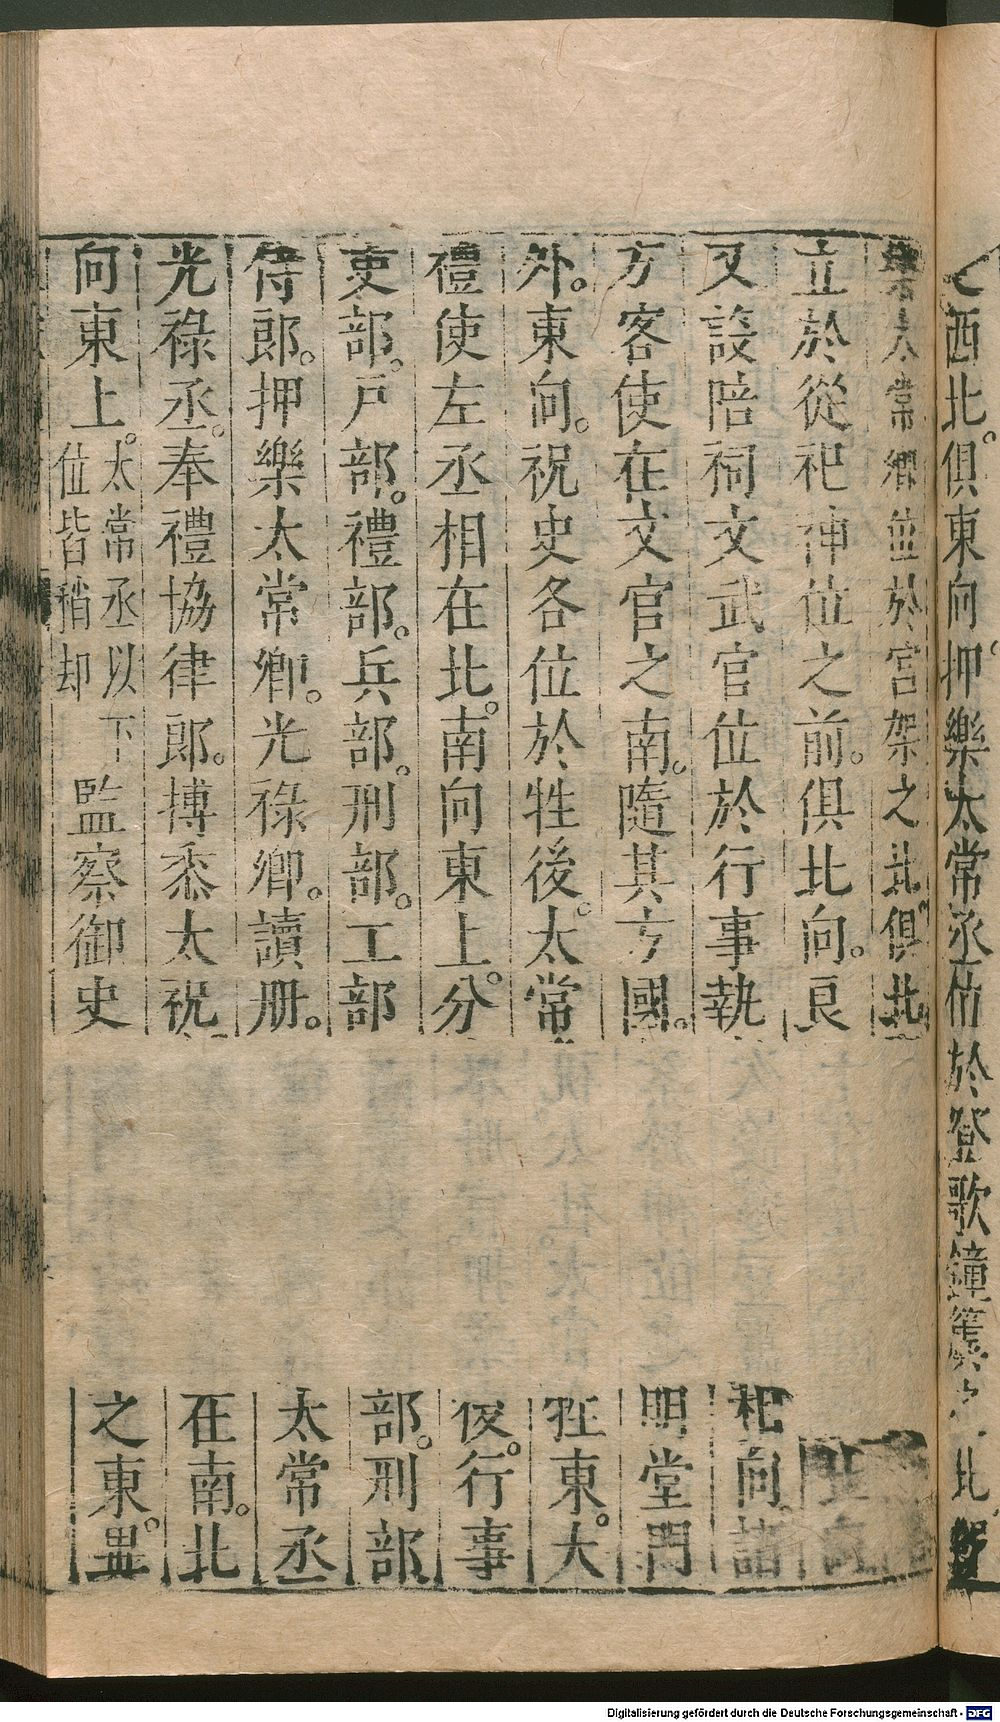 之西北。俱東向。押樂太常丞位於登歌鐘簴之北
樂太常卿位於宮架之北。俱北
立於從祀神位之前。俱北向。良
又設陪祠文武官位於行事執 向。詣
方客使在文官之南。隨其方國。 明堂門
外。東向。祝史各位於牲後。太常 牲東。大
禮使左丞相在北。南向東上。分 後。行事
吏部。戶部。禮部。兵部。刑部。工部 部。刑部
侍郎。押樂太常卿。光祿卿。讀册。 太常丞
光祿丞。奉禮協律郎。搏黍太祝 在南。北
向東上。太常丞以下位皆稍却監察御史 之東。
Digitalisierung gefördert durch die Deutsche Forschungsgemeinschaft - DFG